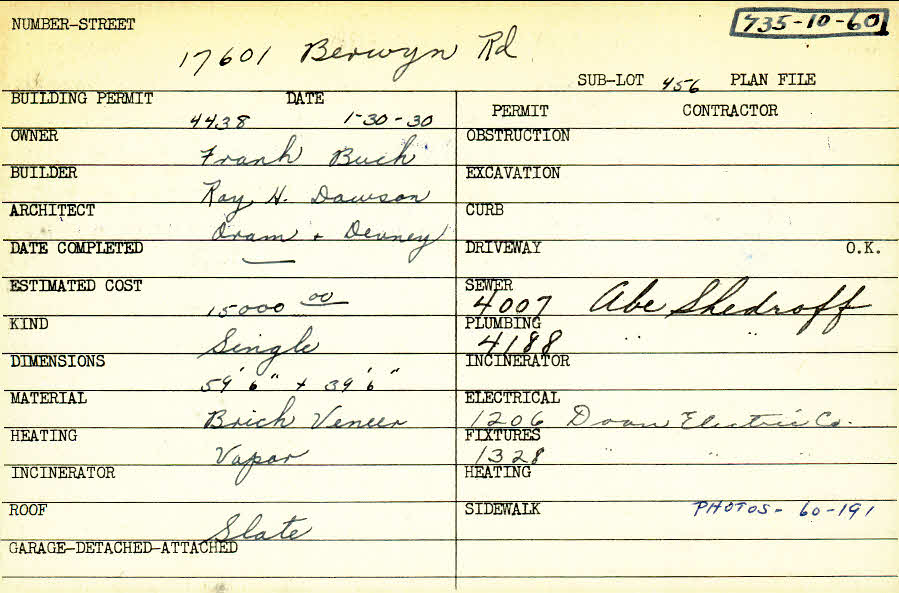 NUMBER-STREET
735-10-60
17601 Berwyn Rd
SUB-LOT 456 PLAN FILE
BUILDING PERMIT DATE
4438 1-30-30
PERMIT CONTRACTOR
OWNER Frank Buch
OBSTRUCTION
BUILDER Ray H. Dawson
EXCAVATION
ARCHITECT Oram + Devney
CURB
DATE COMPLETED —
DRIVEWAY O.K.
ESTIMATED COST 15000 00
SEWER 4007 Abe Shedroff
KIND Single
PLUMBING 4188 " "
DIMENSIONS 59'6" + 39'6"
INCINERATOR
MATERIAL Brick Veneer
ELECTRICAL 1206 Doan Electric Co.
HEATING Vapor
FIXTURES 1328 " " "
INCINERATOR
HEATING
ROOF Slate
SIDEWALK PHOTOS- 60-191
GARAGE-DETACHED-ATTACHED